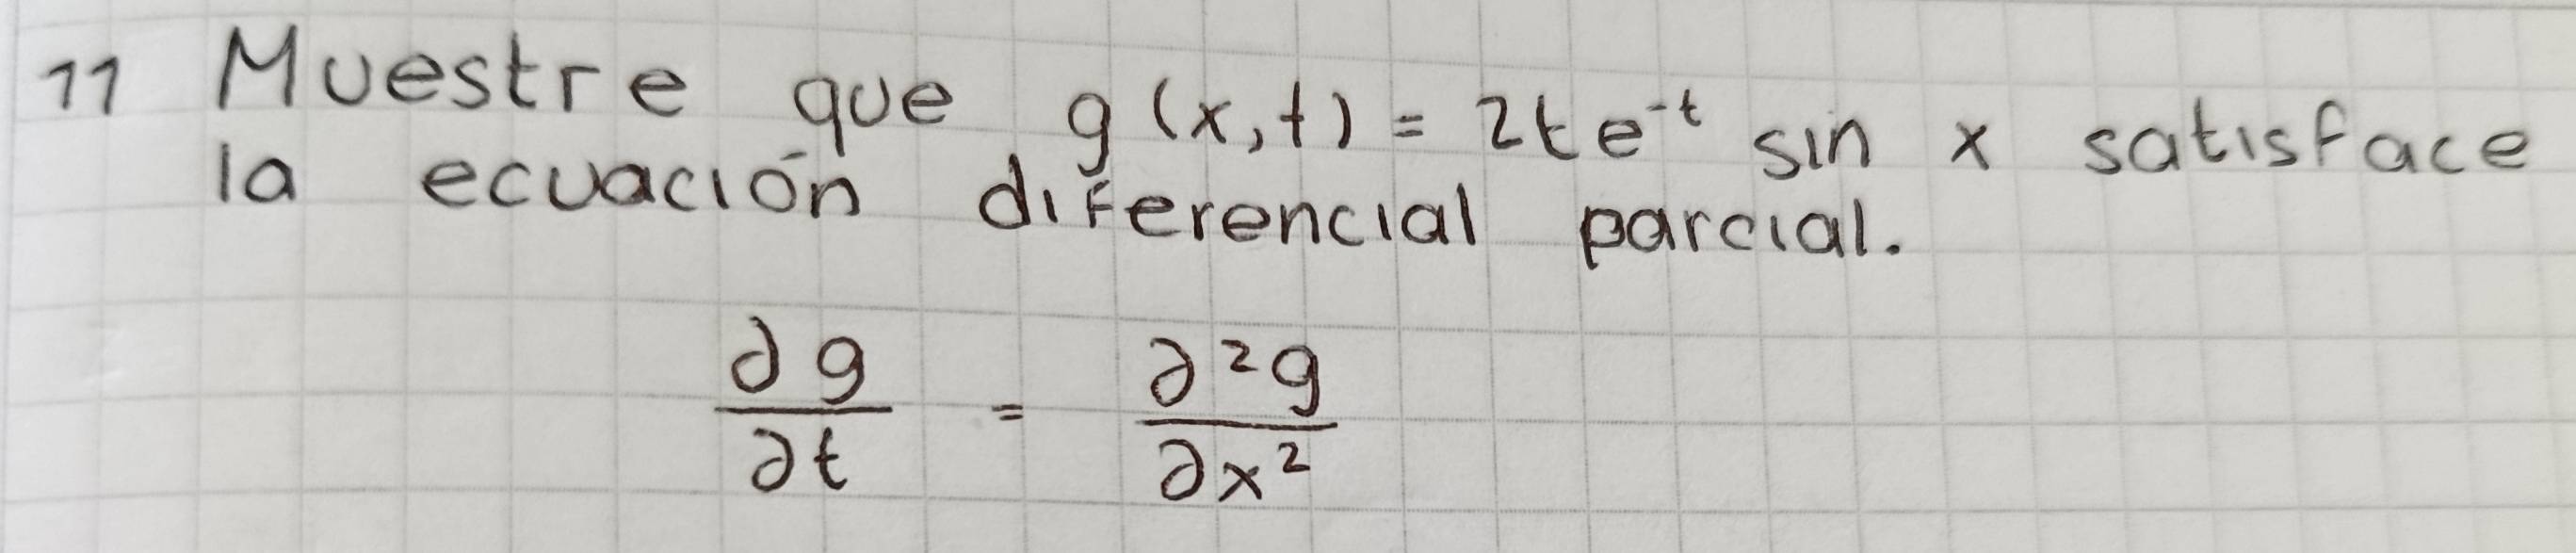 11 Muestre que g(x,t) = 2te^-t sin x satisface
la ecuación diferencial parcial.
∂g/∂t = ∂²g/∂x²